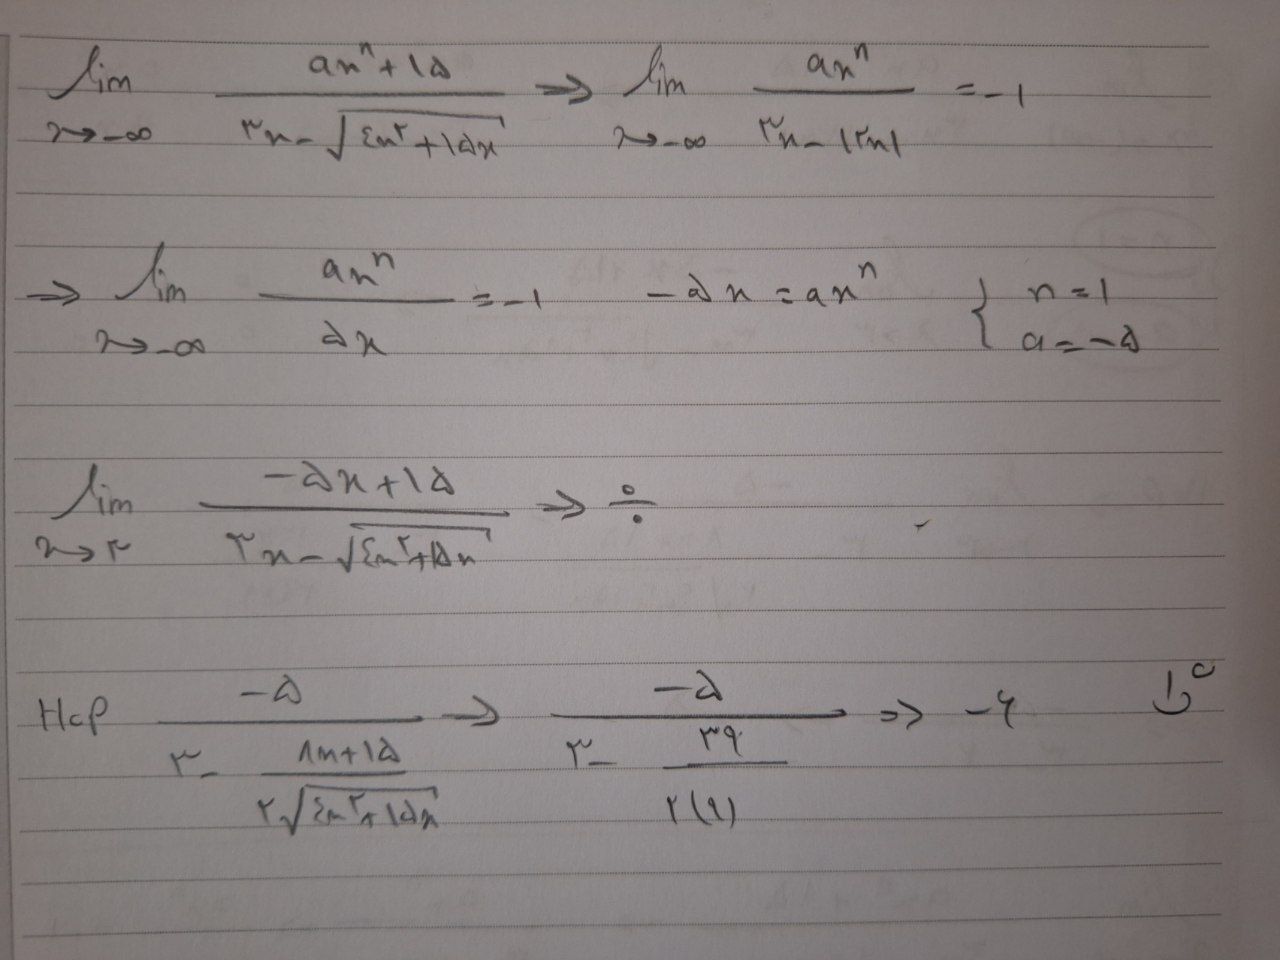 lim x→-∞ (ax^n + ۱۵) / (۳x - √(۴x^۲ + ۱۵x)) ⇒ lim x→-∞ ax^n / (۳x - |۲x|) = -۱
⇒ lim x→-∞ ax^n / ۵x = -۱    -۵x = ax^n    { n = ۱ , a = -۵
lim x→۳ (-۵x + ۱۵) / (۳x - √(۴x^۲ + ۱۵x)) ⇒ ۰/۰
HOP -۵ / (۳ - (۸x + ۱۵) / (۲√(۴x^۲ + ۱۵x))) → -۵ / (۳ - ۳۹ / ۲(۹)) ⇒ -۶